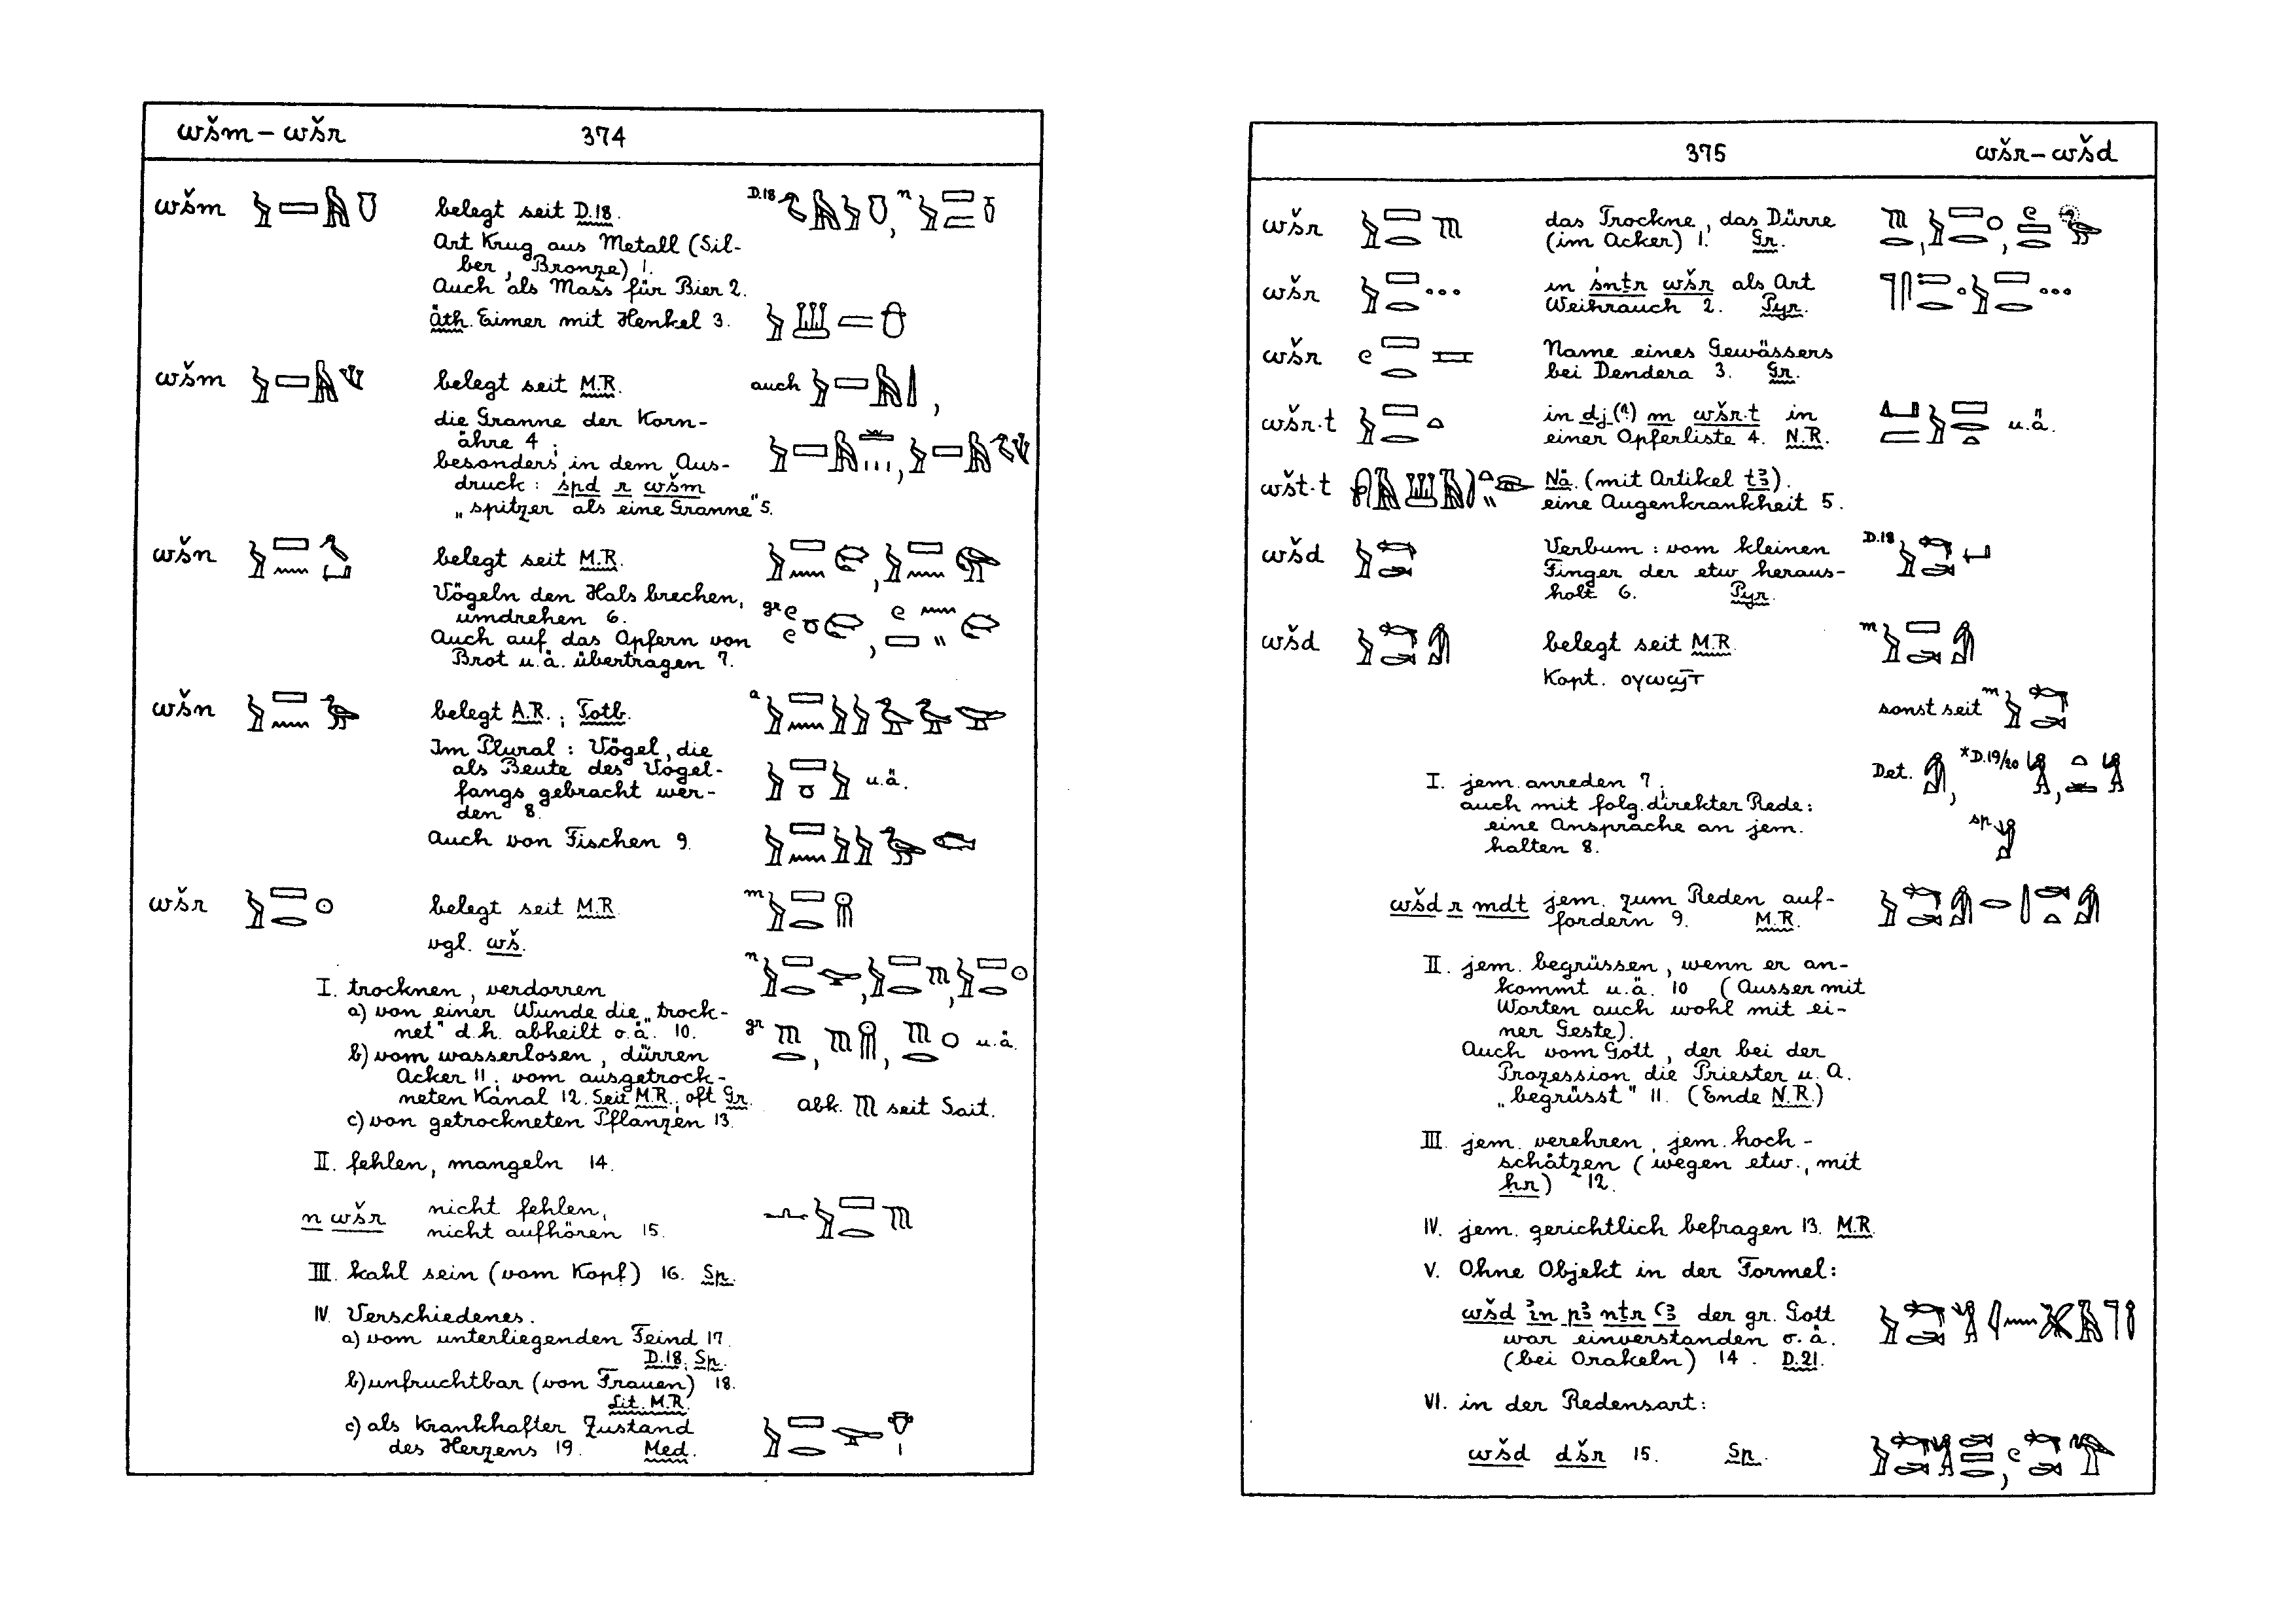 wšm – wšr 374
wšm belegt seit D.18. D.18 n
Art Krug aus Metall (Sil-
ber, Bronze) 1.
Auch als Mass für Bier 2.
Äth. Eimer mit Henkel 3.
wšm belegt seit M.R. auch
die Granne der Korn-
ähre 4;
besonders in dem Aus-
druck: śpd r wšm
„spitzer als eine Granne" 5.
wšn belegt seit M.R.
Vögeln den Hals brechen, gr
umdrehen 6.
Auch auf das Opfern von
Brot u.ä. übertragen 7.
wšn belegt A.R.; Totb. a
Im Plural: Vögel, die
als Beute des Vogel-
fangs gebracht wer- u.ä.
den 8.
Auch von Fischen 9.
wšr belegt seit M.R. m
vgl. wš.
n
I. trocknen, verdorren
a) von einer Wunde die „trock-
net" d.h. abheilt o.ä. 10. gr u.ä.
b) vom wasserlosen, dürren
Acker 11; vom ausgetrock-
neten Kanal 12. Seit M.R., oft Gr. abk. seit Sait.
c) von getrockneten Pflanzen 13.
II. fehlen, mangeln 14.
n wšr nicht fehlen,
nicht aufhören 15.
III. kahl sein (vom Kopf) 16. Sp.
IV. Verschiedenes.
a) vom unterliegenden Feind 17.
D.18; Sp.
b) unfruchtbar (von Frauen) 18.
Lit. M.R.
c) als krankhafter Zustand
des Herzens 19. Med.
375 wšr – wšd
wšr das Trockne, das Dürre
(im Acker) 1. Gr.
wšr in śnṯr wšr als Art
Weihrauch 2. Pyr.
wšr Name eines Gewässers
bei Dendera 3. Gr.
wšr·t in dj(?) m wšr·t in
einer Opferliste 4. N.R. u.ä.
wšt·t Nä. (mit Artikel tꜣ).
eine Augenkrankheit 5.
wšd Verbum: vom kleinen D.18
Finger der etw heraus-
holt 6. Pyr.
wšd belegt seit M.R. m
Kopt. ⲟⲩⲱϣⲧ̄
sonst seit m
Det. *D.19/20
I. jem. anreden 7;
auch mit folg. direkter Rede:
eine Ansprache an jem. sp
halten 8.
wšd r mdt jem. zum Reden auf-
fordern 9. M.R.
II. jem. begrüssen, wenn er an-
kommt u.ä. 10 (Ausser mit
Worten auch wohl mit ei-
ner Geste).
Auch vom Gott, der bei der
Prozession die Priester u. A.
„begrüsst" 11. (Ende N.R.)
III. jem. verehren, jem. hoch-
schätzen (wegen etw., mit
ḥr) 12.
IV. jem. gerichtlich befragen 13. M.R.
V. Ohne Objekt in der Formel:
wšd ꞽn pꜣ nṯr ꜥꜣ der gr. Gott
war einverstanden o.ä.
(bei Orakeln) 14. D.21.
VI. in der Redensart:
wšd dšr 15. Sp.